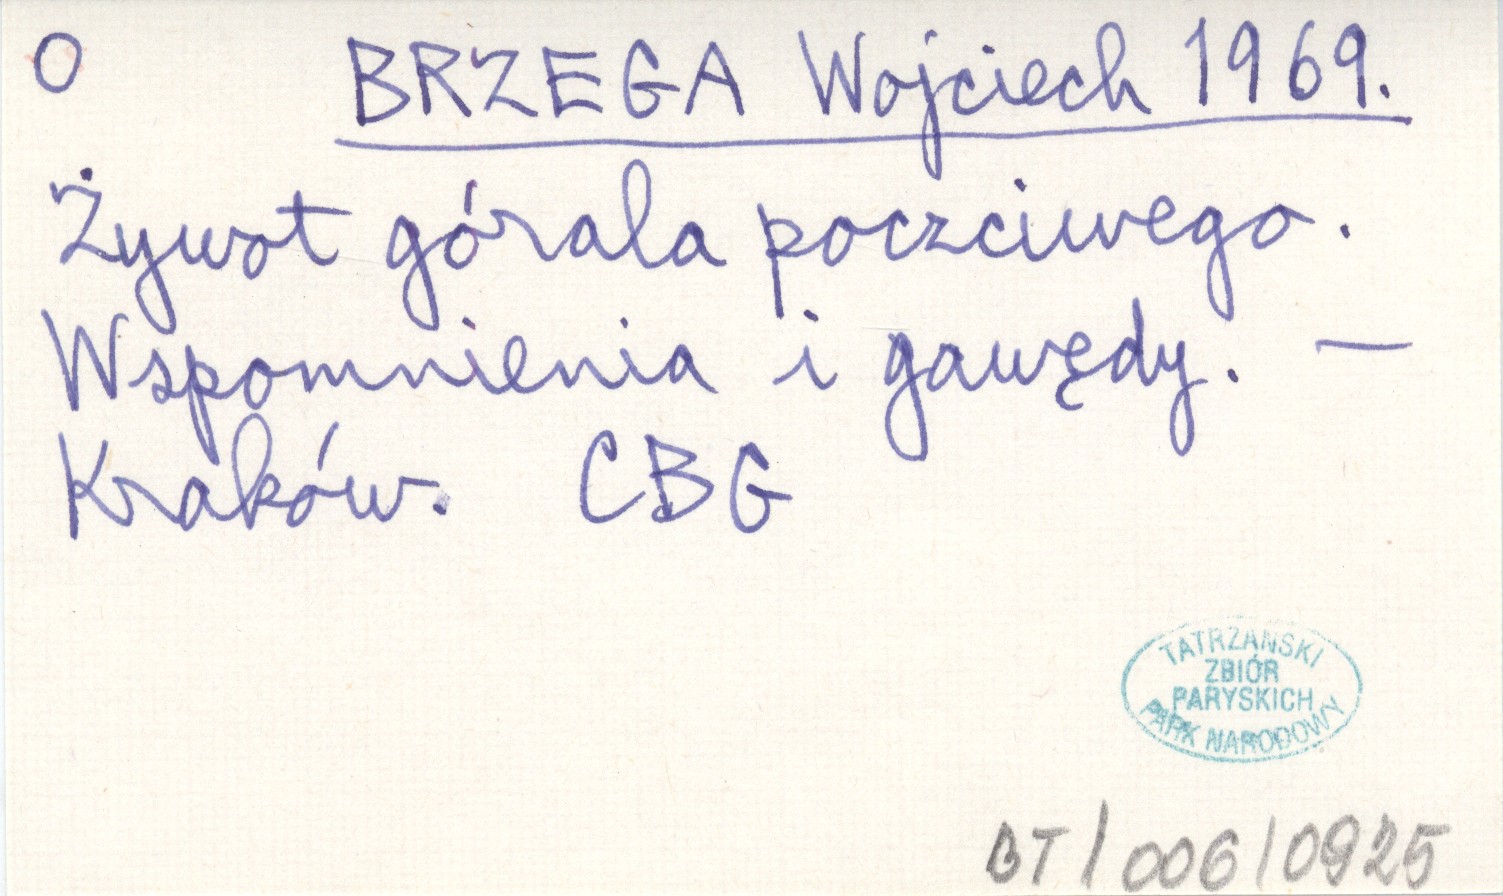 O BRZEGA Wojciech 1969.
Żywot górala poczciwego.
Wspomnienia i gawędy. —
Kraków. CBG
TATRZAŃSKI
ZBIÓR
PARYSKICH
PARK NARODOWY
BT/006/0925